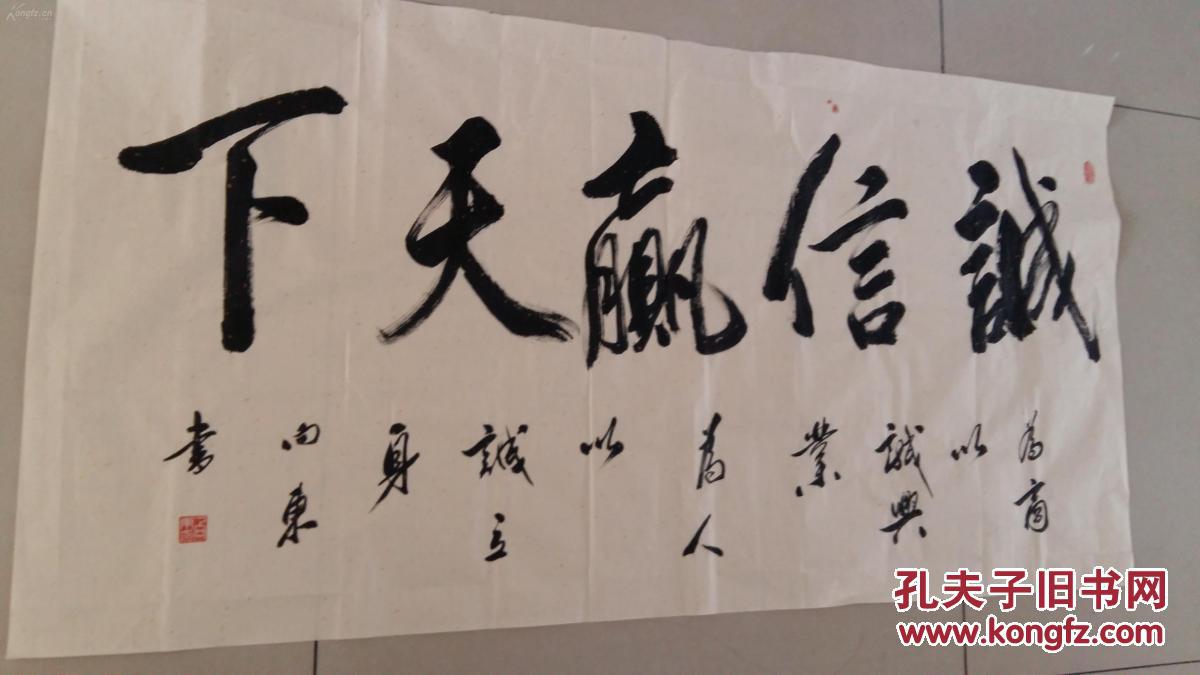 誠信贏天下
為商
以
誠興
業
為人
以
誠立
身
向東
書
孔夫子旧书网
www.kongfz.com
Kongfz.cn